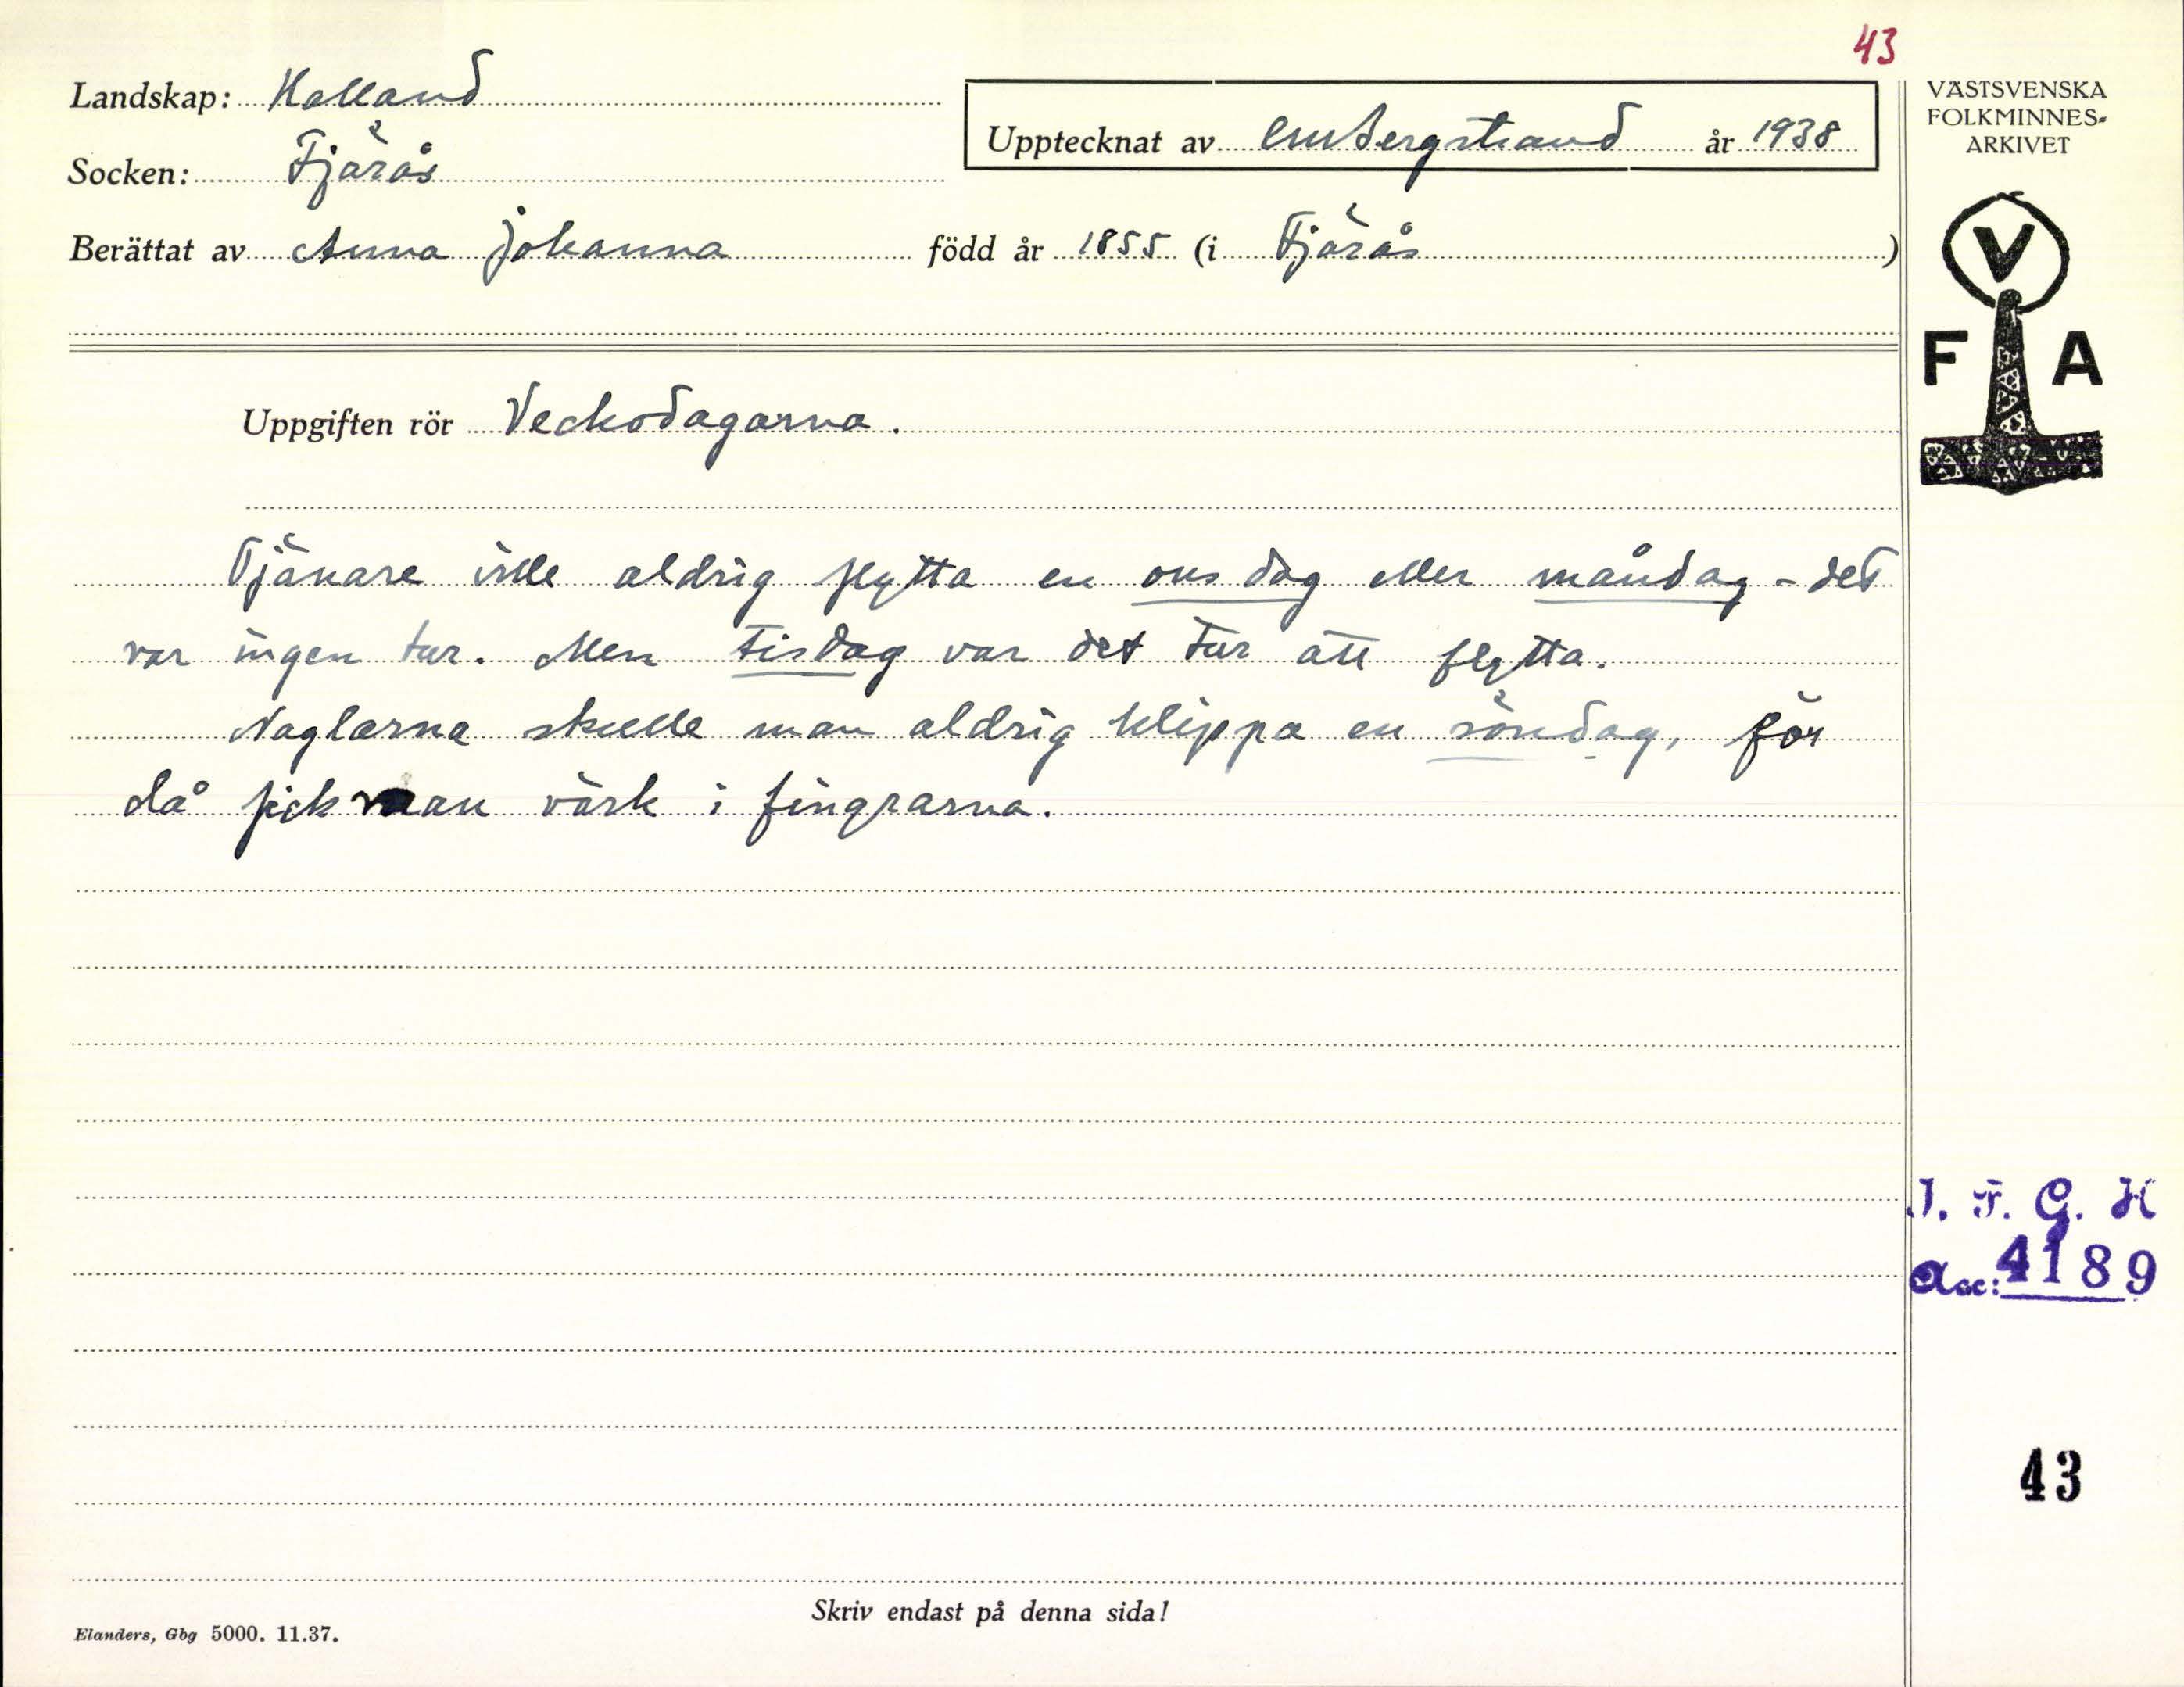 43
Landskap: Halland
Upptecknat av CM Bergstrand år 1938
Socken: Fjärås
Berättat av Anna Johanna född år 1855 (i Fjärås)
VÄSTSVENSKA
FOLKMINNES-
ARKIVET
V
F A
Uppgiften rör Veckodagarna.
Tjänare ville aldrig flytta en onsdag eller måndag - det
var ingen tur. Men tisdag var det tur att flytta.
Naglarna skulle man aldrig klippa en söndag, för
då fick man värk i fingrarna.
I. F. G. H
Acc: 4189
43
Skriv endast på denna sida!
Elanders, Gbg 5000. 11.37.